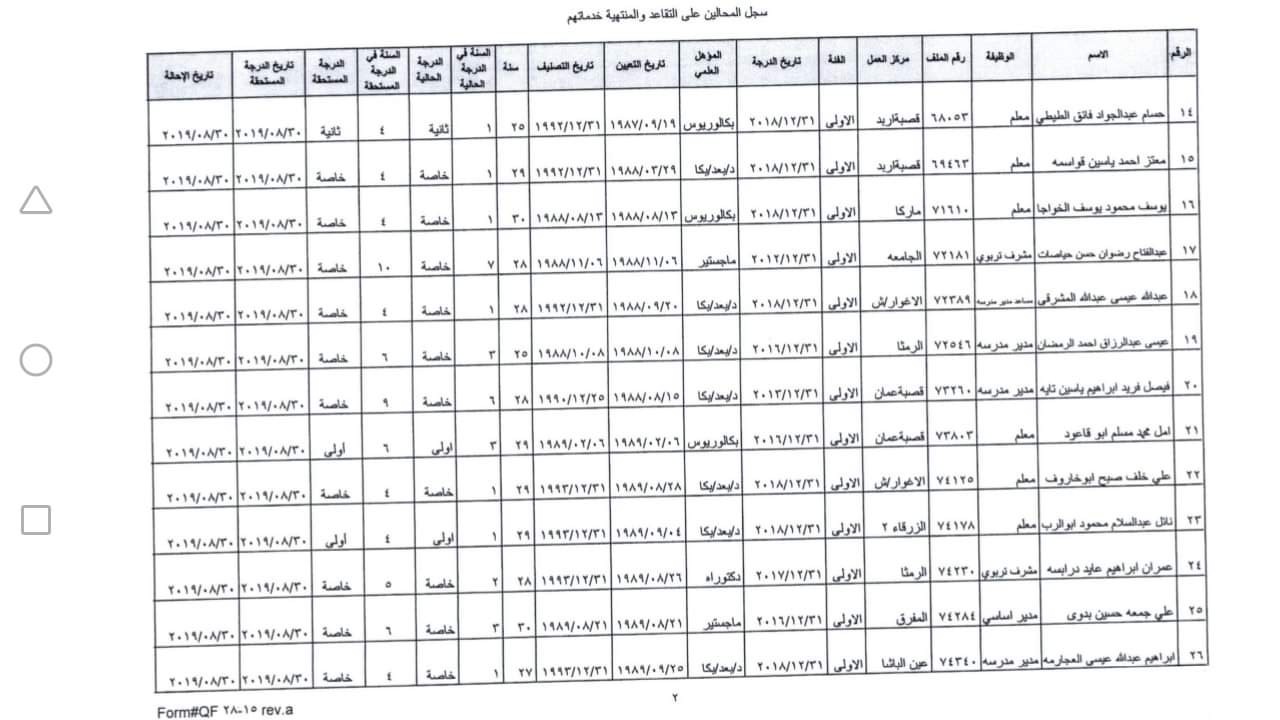 سجل المحالين على التقاعد والمنتهية خدماتهم
الرقم الاسم الوظيفة رقم الملف مركز العمل الفئة تاريخ الدرجة المؤهل العلمي تاريخ التعيين تاريخ التصنيف سنة السنة في الدرجة الحالية الدرجة الحالية السنة في الدرجة المستحقة الدرجة المستحقة تاريخ الدرجة المستحقة تاريخ الإحالة
١٤ حسام عبدالجواد فائق الطيطي معلم ٦٨٠٥٣ قصبةاربد الاولى ٢٠١٨/١٢/٣١ بكالوريوس ١٩٨٧/٠٩/١٩ ١٩٩٢/١٢/٣١ ٢٥ ١ ثانية ٤ ثانية ٢٠١٩/٠٨/٣٠ ٢٠١٩/٠٨/٣٠
١٥ معتز احمد ياسين قواسمه معلم ٦٩٤٦٣ قصبةاربد الاولى ٢٠١٨/١٢/٣١ د/بعد/بكا ١٩٨٨/٠٣/٢٩ ١٩٩٢/١٢/٣١ ٢٩ ١ خاصة ٤ خاصة ٢٠١٩/٠٨/٣٠ ٢٠١٩/٠٨/٣٠
١٦ يوسف محمود يوسف الخواجا معلم ٧١٦١٠ ماركا الاولى ٢٠١٨/١٢/٣١ بكالوريوس ١٩٨٨/٠٨/١٣ ١٩٨٨/٠٨/١٣ ٣٠ ١ خاصة ٤ خاصة ٢٠١٩/٠٨/٣٠ ٢٠١٩/٠٨/٣٠
١٧ عبدالفتاح رضوان حسن حياصات مشرف تربوي ٧٢١٨١ الجامعه الاولى ٢٠١٢/١٢/٣١ ماجستير ١٩٨٨/١١/٠٦ ١٩٨٨/١١/٠٦ ٢٨ ٧ خاصة ١٠ خاصة ٢٠١٩/٠٨/٣٠ ٢٠١٩/٠٨/٣٠
١٨ عبدالله عيسى عبدالله المشرقي مساعد مدير مدرسه ٧٢٣٨٩ الاغوار/ش الاولى ٢٠١٨/١٢/٣١ د/بعد/بكا ١٩٨٨/٠٩/٢٠ ١٩٩٢/١٢/٣١ ٢٨ ١ خاصة ٤ خاصة ٢٠١٩/٠٨/٣٠ ٢٠١٩/٠٨/٣٠
١٩ عيسى عبدالرزاق احمد الرمضان مدير مدرسه ٧٢٥٤٦ الرمثا الاولى ٢٠١٦/١٢/٣١ د/بعد/بكا ١٩٨٨/١٠/٠٨ ١٩٨٨/١٠/٠٨ ٢٥ ٣ خاصة ٦ خاصة ٢٠١٩/٠٨/٣٠ ٢٠١٩/٠٨/٣٠
٢٠ فيصل فريد ابراهيم ياسين تايه مدير مدرسه ٧٣٢٦٠ قصبةعمان الاولى ٢٠١٣/١٢/٣١ د/بعد/بكا ١٩٨٨/٠٨/١٥ ١٩٩٠/١٢/٢٥ ٢٨ ٦ خاصة ٩ خاصة ٢٠١٩/٠٨/٣٠ ٢٠١٩/٠٨/٣٠
٢١ امل محمد مسلم ابو قاعود معلم ٧٣٨٠٣ قصبةعمان الاولى ٢٠١٦/١٢/٣١ بكالوريوس ١٩٨٩/٠٢/٠٦ ١٩٨٩/٠٢/٠٦ ٢٩ ٣ اولى ٦ أولى ٢٠١٩/٠٨/٣٠ ٢٠١٩/٠٨/٣٠
٢٢ علي خلف صبح ابوخاروف معلم ٧٤١٢٥ الاغوار/ش الاولى ٢٠١٨/١٢/٣١ د/بعد/بكا ١٩٨٩/٠٨/٢٨ ١٩٩٣/١٢/٣١ ٢٩ ١ خاصة ٤ خاصة ٢٠١٩/٠٨/٣٠ ٢٠١٩/٠٨/٣٠
٢٣ نائل عبدالسلام محمود ابوالرب معلم ٧٤١٧٨ الزرقاء ٢ الاولى ٢٠١٨/١٢/٣١ د/بعد/بكا ١٩٨٩/٠٩/٠٤ ١٩٩٣/١٢/٣١ ٢٩ ١ اولى ٤ أولى ٢٠١٩/٠٨/٣٠ ٢٠١٩/٠٨/٣٠
٢٤ عمران ابراهيم عايد درابسه مشرف تربوي ٧٤٢٣٠ الرمثا الاولى ٢٠١٧/١٢/٣١ دكتوراه ١٩٨٩/٠٨/٢٦ ١٩٩٣/١٢/٣١ ٢٨ ٢ خاصة ٥ خاصة ٢٠١٩/٠٨/٣٠ ٢٠١٩/٠٨/٣٠
٢٥ علي جمعه حسين بدوى مدير اساسي ٧٤٢٨٤ المفرق الاولى ٢٠١٦/١٢/٣١ ماجستير ١٩٨٩/٠٨/٢١ ١٩٨٩/٠٨/٢١ ٣٠ ٣ خاصة ٦ خاصة ٢٠١٩/٠٨/٣٠ ٢٠١٩/٠٨/٣٠
٢٦ ابراهيم عبدالله عيسى العجارمه مدير مدرسه ٧٤٣٤٠ عين الباشا الاولى ٢٠١٨/١٢/٣١ د/بعد/بكا ١٩٨٩/٠٩/٢٥ ١٩٩٣/١٢/٣١ ٢٧ ١ خاصة ٤ خاصة ٢٠١٩/٠٨/٣٠ ٢٠١٩/٠٨/٣٠
٢
Form#QF ٢٨-١٥ rev.a